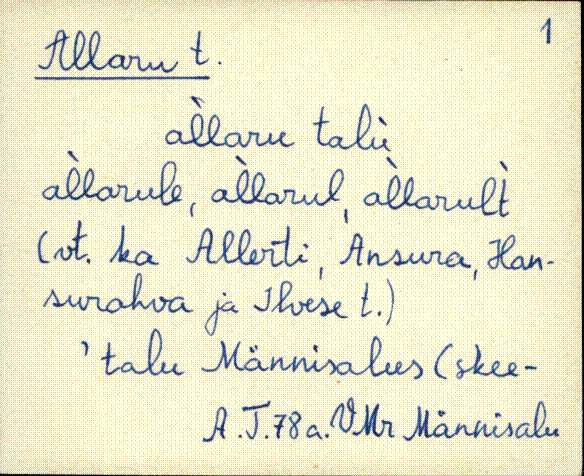 1
Allaru t.
àllaru talù
àllarule, àllarul, àllarult̀
(vt. ka Allerti, Ansura, Han-
surahva ja Ilvese t.)
' talu Männisalus (skee-
A.T.78a. VMr Männisalu